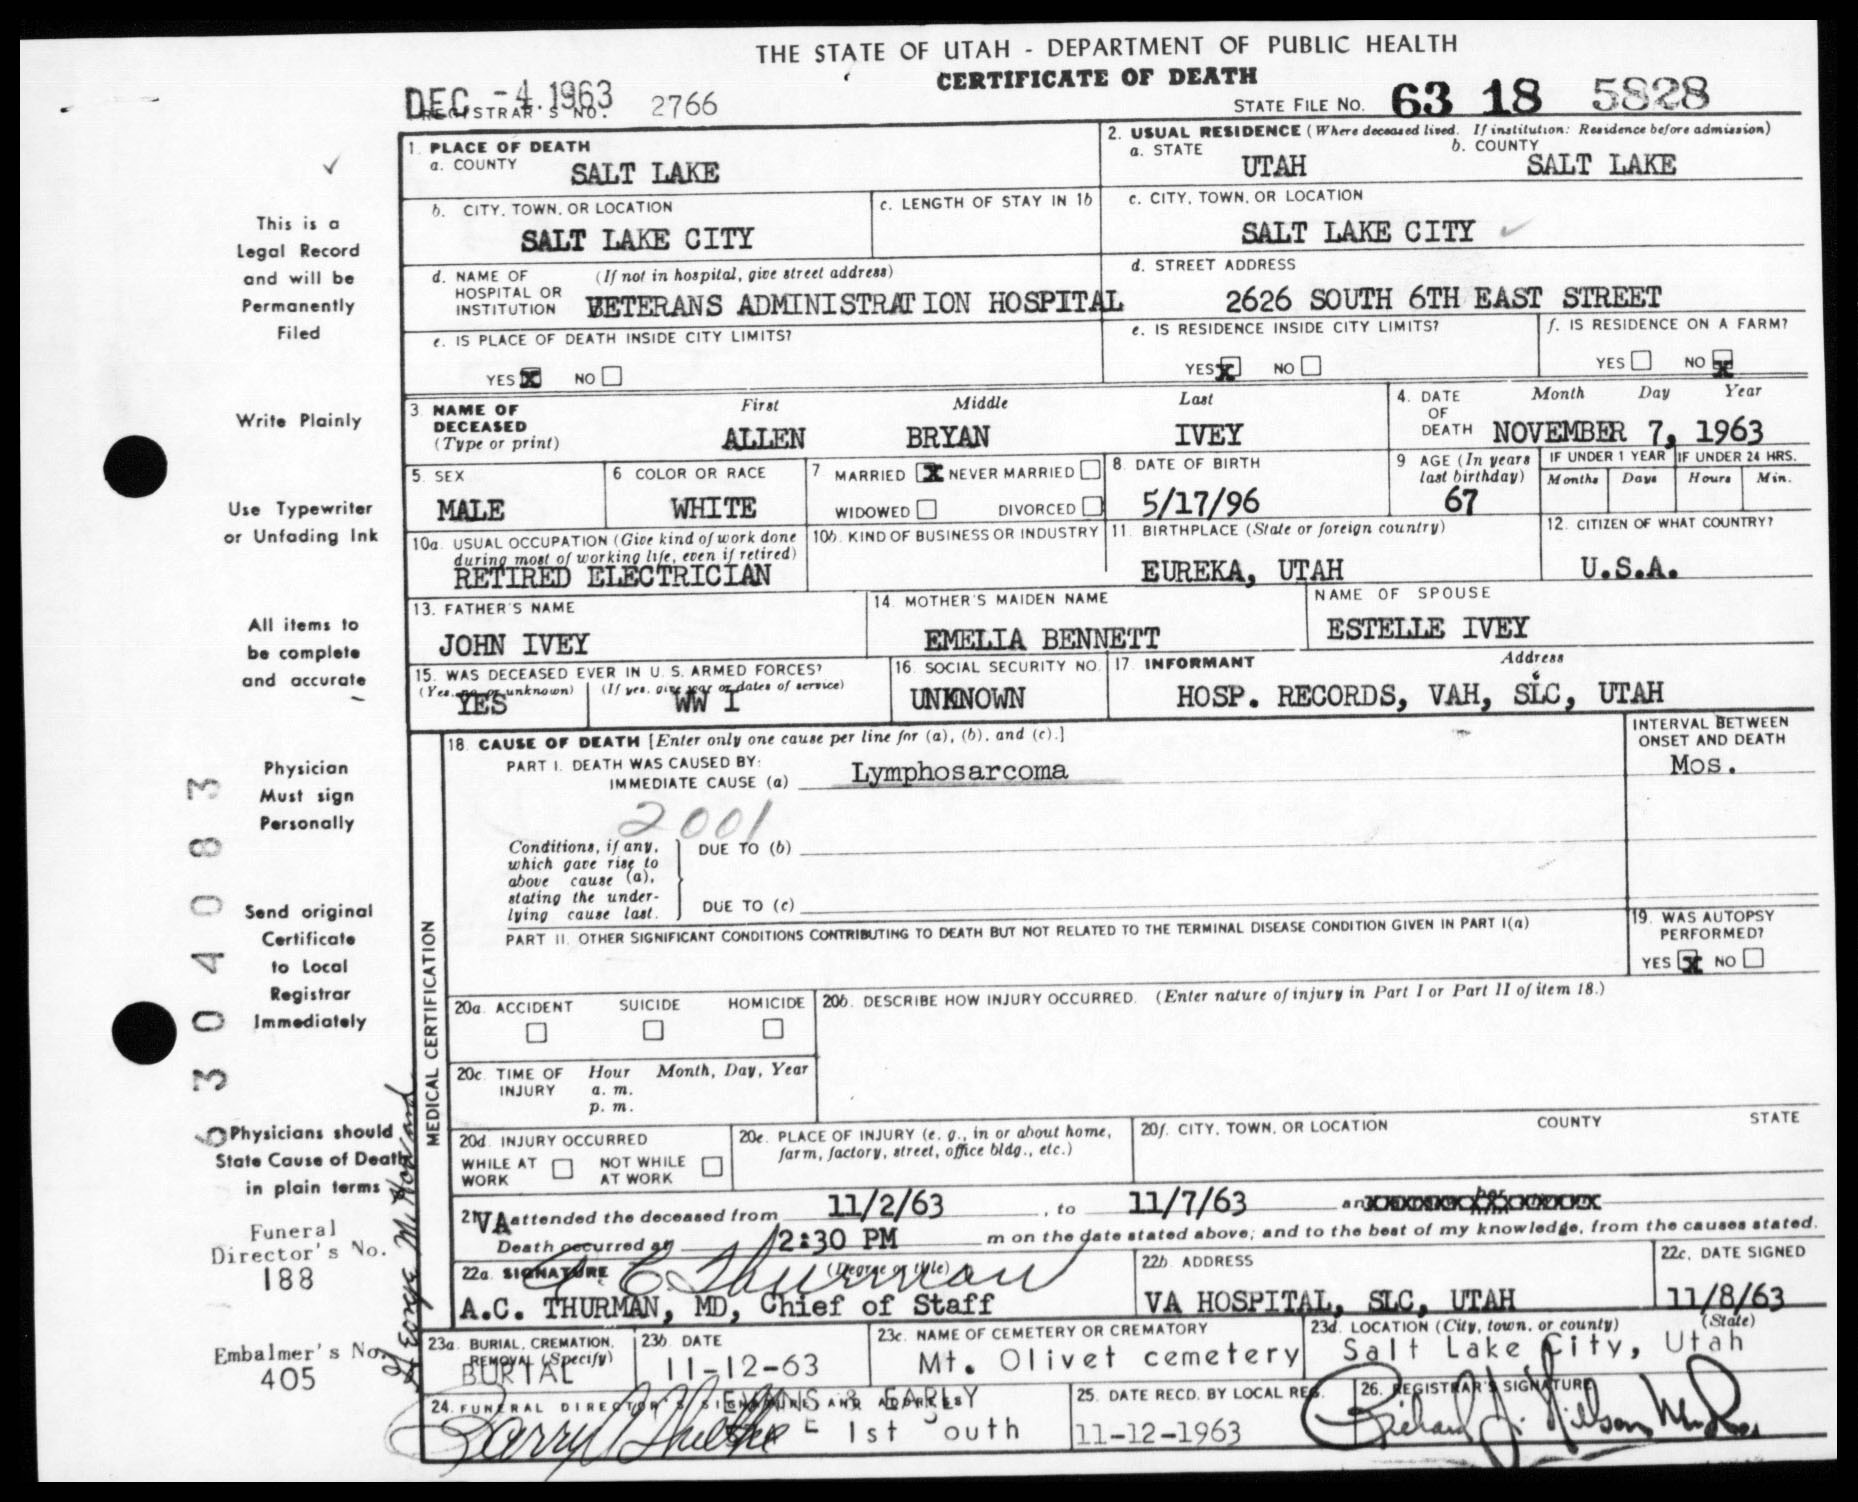 THE STATE OF UTAH - DEPARTMENT OF PUBLIC HEALTH
CERTIFICATE OF DEATH
DEC -4.1963
REGISTRAR'S NO. 2766
STATE FILE NO. 63 18 5828
1. PLACE OF DEATH
a. COUNTY SALT LAKE
2. USUAL RESIDENCE (Where deceased lived. If institution: Residence before admission)
a. STATE UTAH b. COUNTY SALT LAKE
b. CITY, TOWN, OR LOCATION SALT LAKE CITY
c. LENGTH OF STAY IN 1b
c. CITY, TOWN, OR LOCATION SALT LAKE CITY
d. NAME OF HOSPITAL OR INSTITUTION (If not in hospital, give street address) VETERANS ADMINISTRATION HOSPITAL
d. STREET ADDRESS 2626 SOUTH 6TH EAST STREET
e. IS PLACE OF DEATH INSIDE CITY LIMITS?
YES X NO
e. IS RESIDENCE INSIDE CITY LIMITS?
YES X NO
f. IS RESIDENCE ON A FARM?
YES NO X
3. NAME OF DECEASED (Type or print)
First Middle Last
ALLEN BRYAN IVEY
4. DATE OF DEATH Month Day Year
NOVEMBER 7, 1963
5. SEX MALE
6 COLOR OR RACE WHITE
7 MARRIED X NEVER MARRIED
WIDOWED DIVORCED
8. DATE OF BIRTH 5/17/96
9 AGE (In years last birthday) 67
IF UNDER 1 YEAR Months Days
IF UNDER 24 HRS. Hours Min.
10a. USUAL OCCUPATION (Give kind of work done during most of working life, even if retired)
RETIRED ELECTRICIAN
10b. KIND OF BUSINESS OR INDUSTRY
11. BIRTHPLACE (State or foreign country)
EUREKA, UTAH
12. CITIZEN OF WHAT COUNTRY?
U.S.A.
13. FATHER'S NAME
JOHN IVEY
14. MOTHER'S MAIDEN NAME
EMELIA BENNETT
NAME OF SPOUSE
ESTELLE IVEY
15. WAS DECEASED EVER IN U. S. ARMED FORCES?
(Yes, no, or unknown) (If yes, give war or dates of service)
YES WW I
16. SOCIAL SECURITY NO.
UNKNOWN
17. INFORMANT Address
HOSP. RECORDS, VAH, SLC, UTAH
MEDICAL CERTIFICATION
18. CAUSE OF DEATH [Enter only one cause per line for (a), (b), and (c).]
PART I. DEATH WAS CAUSED BY:
IMMEDIATE CAUSE (a) Lymphosarcoma
INTERVAL BETWEEN ONSET AND DEATH
Mos.
2001
Conditions, if any, which gave rise to above cause (a), stating the underlying cause last.
DUE TO (b)
DUE TO (c)
PART II. OTHER SIGNIFICANT CONDITIONS CONTRIBUTING TO DEATH BUT NOT RELATED TO THE TERMINAL DISEASE CONDITION GIVEN IN PART I(a)
19. WAS AUTOPSY PERFORMED?
YES X NO
20a. ACCIDENT SUICIDE HOMICIDE
20b. DESCRIBE HOW INJURY OCCURRED. (Enter nature of injury in Part I or Part II of item 18.)
20c. TIME OF INJURY Hour Month, Day, Year
a. m.
p. m.
20d. INJURY OCCURRED
WHILE AT WORK NOT WHILE AT WORK
20e. PLACE OF INJURY (e. g., in or about home, farm, factory, street, office bldg., etc.)
20f. CITY, TOWN, OR LOCATION COUNTY STATE
21. VA attended the deceased from 11/2/63, to 11/7/63
Death occurred at 2:30 PM m on the date stated above; and to the best of my knowledge, from the causes stated.
22a. SIGNATURE (Degree or title)
A C Thurman
A.C. THURMAN, MD, Chief of Staff
22b. ADDRESS
VA HOSPITAL, SLC, UTAH
22c. DATE SIGNED
11/8/63
23a. BURIAL, CREMATION, REMOVAL (Specify)
BURIAL
23b. DATE
11-12-63
23c. NAME OF CEMETERY OR CREMATORY
Mt. Olivet cemetery
23d. LOCATION (City, town, or county) (State)
Salt Lake City, Utah
24. FUNERAL DIRECTOR'S SIGNATURE AND ADDRESS
EVANS & EARLY
E 1st South
25. DATE RECD. BY LOCAL REG.
11-12-1963
26. REGISTRAR'S SIGNATURE
This is a
Legal Record
and will be
Permanently
Filed
Write Plainly
Use Typewriter
or Unfading Ink
All items to
be complete
and accurate
Physician
Must sign
Personally
Send original
Certificate
to Local
Registrar
Immediately
Physicians should
State Cause of Death
in plain terms
Funeral
Director's No.
188
Embalmer's No.
405
6304083